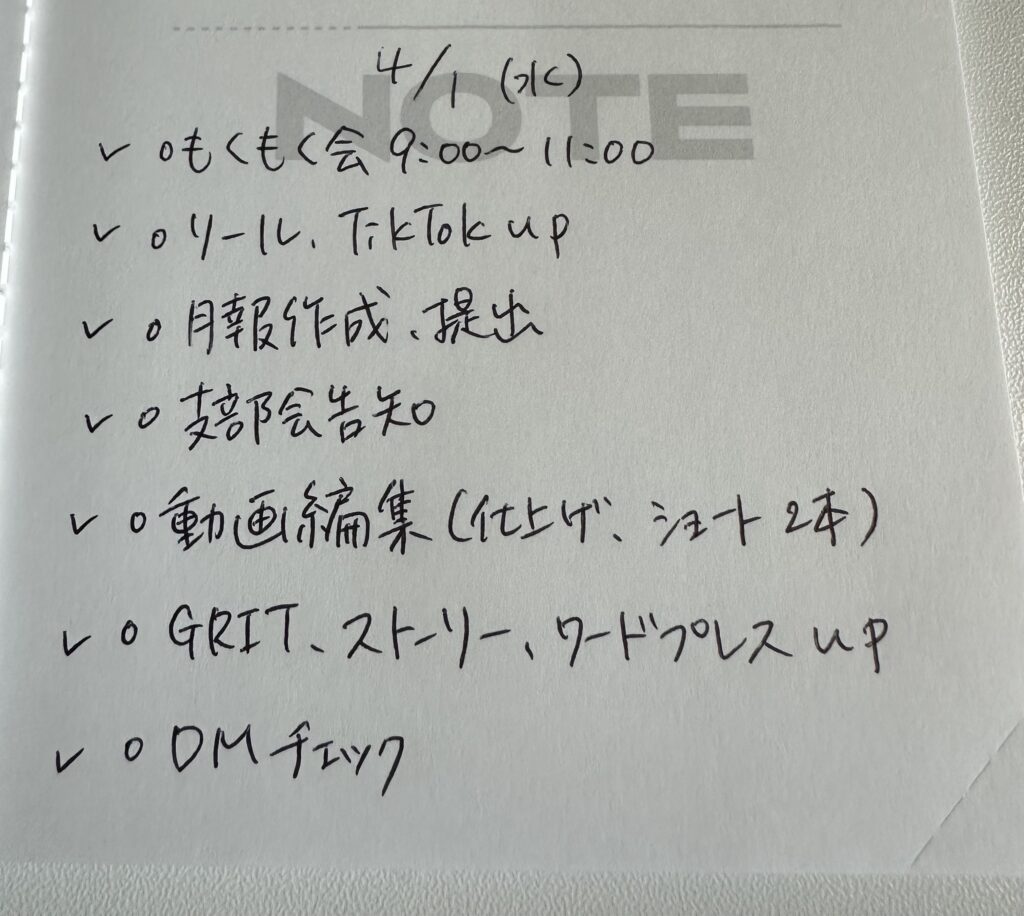 NOTE
4/1 (水)
✓ ○もくもく会 9:00〜11:00
✓ ○リール、TikTok up
✓ ○月報作成、提出
✓ ○支部会告知
✓ ○動画編集(仕上げ、ショート2本)
✓ ○GRIT、ストーリー、ワードプレス up
✓ ○DMチェック